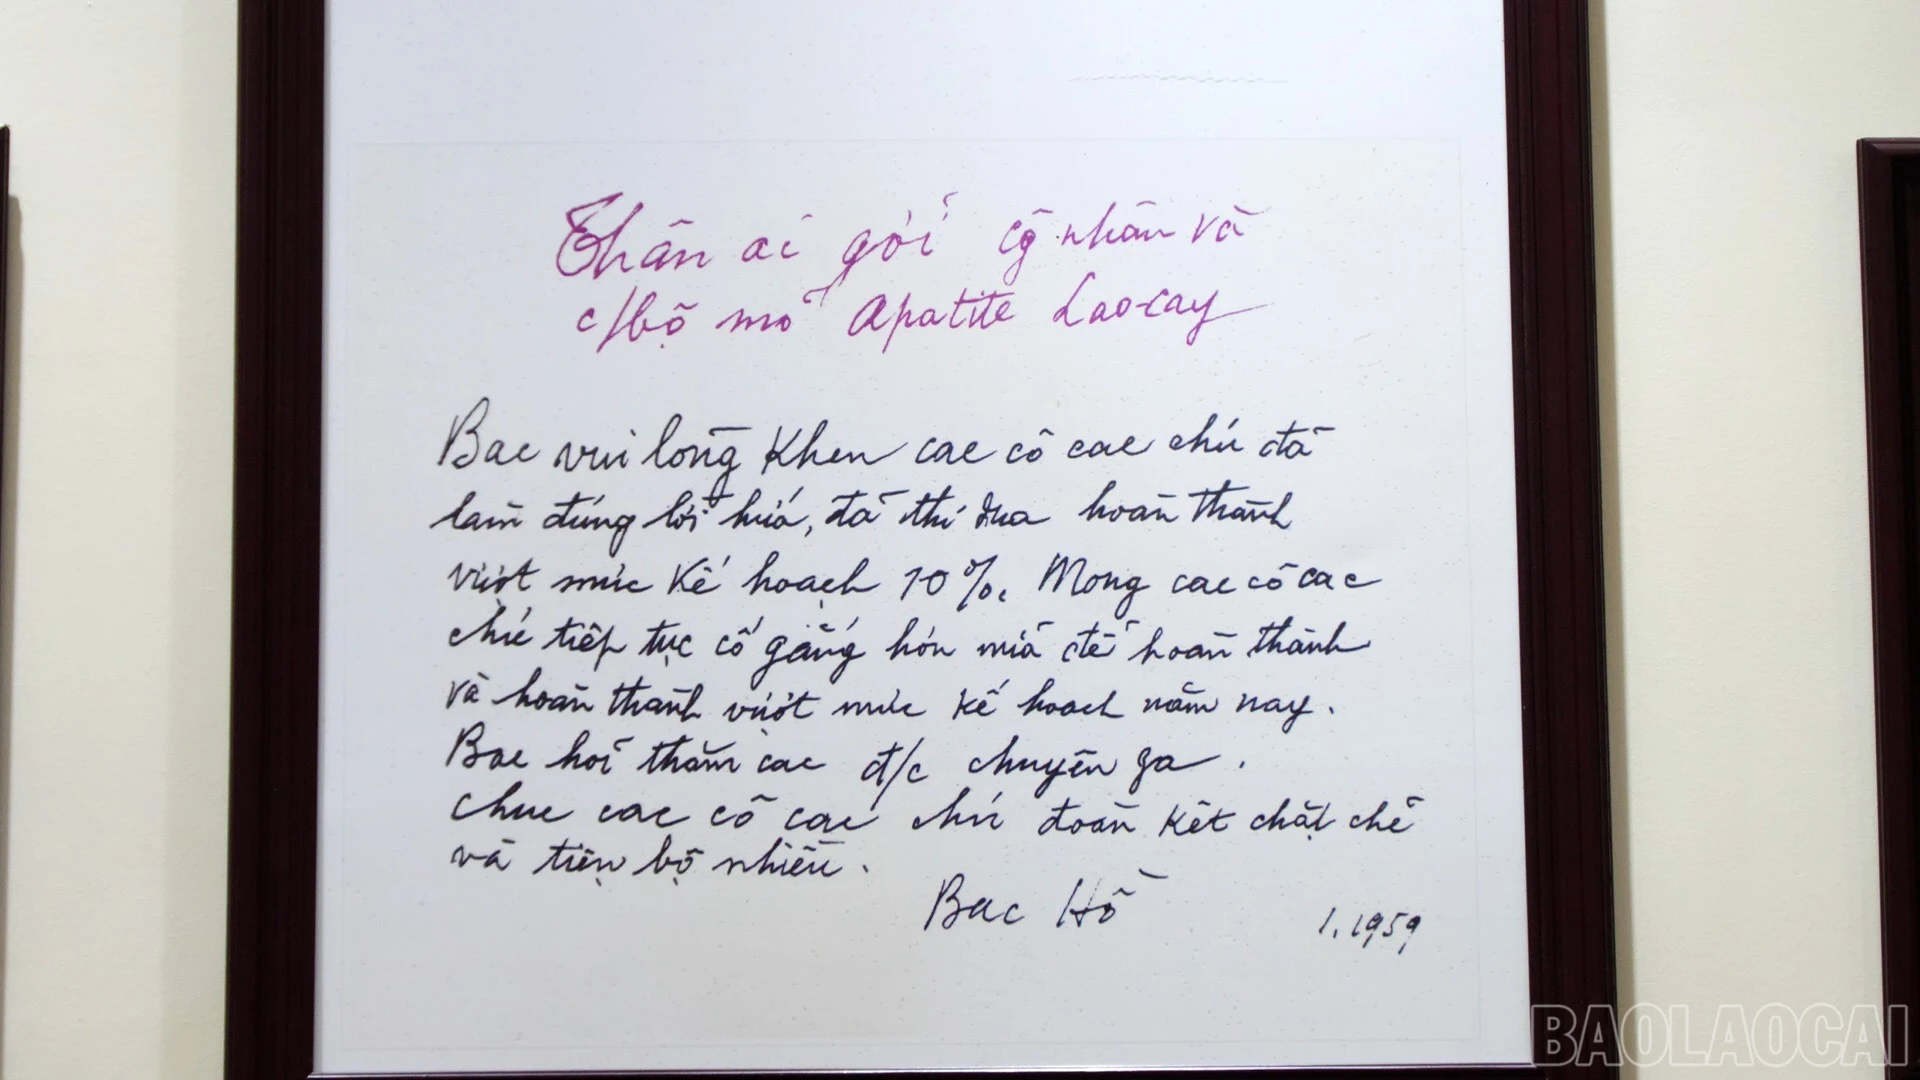 Thân ái gởi cộ nhân và
c/bộ mỏ Apatite Laocay
Bác vui lòng khen các cô các chú đã
làm đúng lời hứa, đã thi đua hoàn thành
vượt mức kế hoạch 10%. Mong các cô các
chú tiếp tục cố gắng hơn nữa để hoàn thành
và hoàn thành vượt mức kế hoạch năm nay.
Bác hỏi thăm các đ/c chuyên ga.
Chúc các cô các chú đoàn kết chặt chẽ
và tiến bộ nhiều.
Bác Hồ
1.1959
BAOLAOCAI